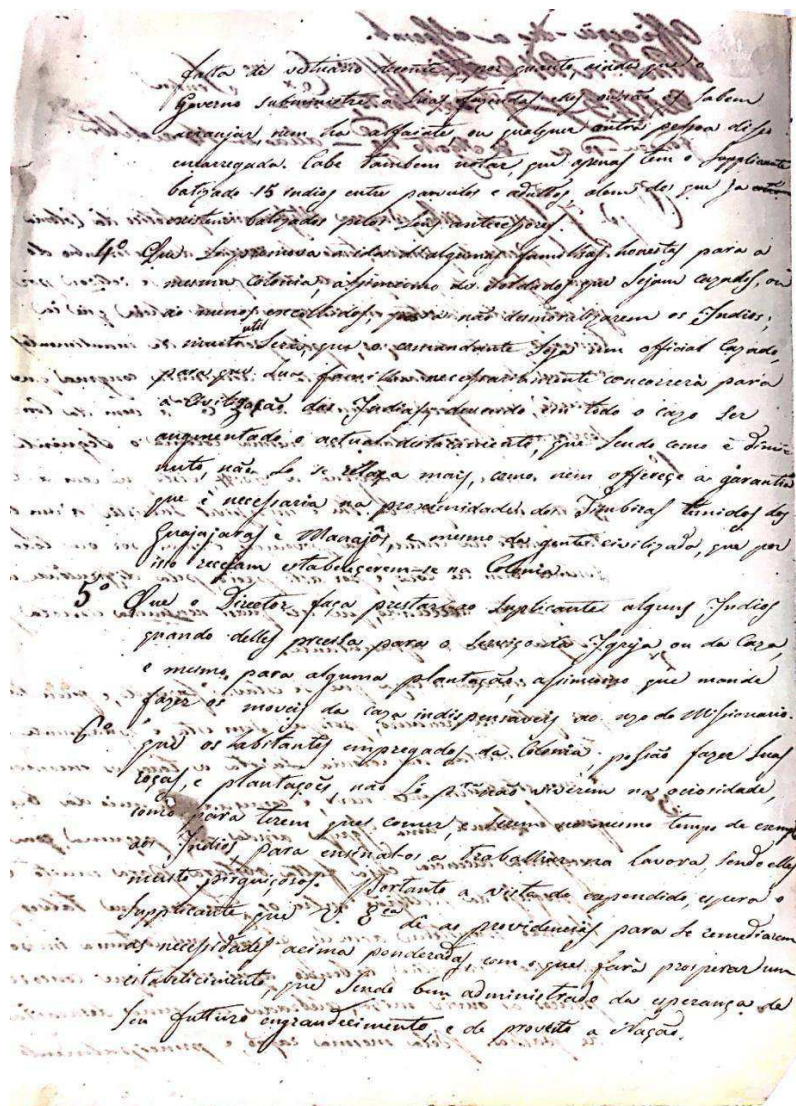 falta de vestuario decente, por quanto, ainda que o
Governo subministre a suas fazendas elles não as sabem
arranjar nem ha alfaiate ou qualquer outra pessoa disso
encarregada. Cabe tambem notar, que apenas tem o Supplicante
batizado 15 indios entre parvulos e adultos alem dos que ja
existem batizados pelos seus antecessores.
4º Que se promova a ida d'algumas familias honestas para a
mesma Colonia, assim como de soldados que sejam cazados, ou
ao menos escolhidos, para não desmoralizarem os Indios;
muito util será, que o comandante seja um official cazado,
para que sua familia necessariamente concorrerá para
a civilização das Indias, devendo em todo o cazo ser
augmentado o actual destacamento, que sendo como é dimi-
nuto, não só se relaxa mais, como nem offereçe a garantia
que é necessaria na proximidade dos Timbiras temidos dos
Guajajaras e Manajôs, e mesmo da gente civilizada, que por
isso receiam estabeleçerem-se na Colonia.
5º Que o Director faça prestar ao Suplicante alguns Indios
quando delles precisa para o serviço da Igreja ou da Caza,
e mesmo para alguma plantação, assim como que mande
fazer os moveis da caza indispensáveis ao uzo do Missionario.
6º que os habitantes empregados da Colonia, possão fazer suas
roças, e plantações, não só pª não viverem na ociosidade,
como para terem que comer, e serem ao mesmo tempo de exemplo
aos Indios para ensinal-os a trabalhar na lavora, sendo elles
muito priguiçosos. Portanto a vista do expendido, espera o
Supplicante que V. Exª dê as providencias para se remediarem
as necessidades acima ponderadas, com o que fará prosperar um
estabelicimento, que sendo bem administrado da esperança de
seu futturo engrandecimento, e de proveito a Nação.